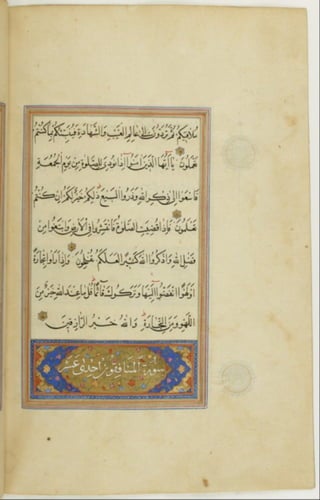 مُلَاقِيكُمْ ثُمَّ تُرَدُّونَ إِلَى عَالِمِ الْغَيْبِ وَالشَّهَادَةِ فَيُنَبِّئُكُمْ بِمَا كُنْتُمْ
تَعْمَلُونَ يَا أَيُّهَا الَّذِينَ آمَنُوا إِذَا نُودِيَ لِلصَّلٰوةِ مِنْ يَوْمِ الْجُمُعَةِ
فَاسْعَوْا إِلَى ذِكْرِ اللهِ وَذَرُوا الْبَيْعَ ذٰلِكُمْ خَيْرٌ لَكُمْ إِنْ كُنْتُمْ
تَعْلَمُونَ فَإِذَا قُضِيَتِ الصَّلٰوةُ فَانْتَشِرُوا فِي الْأَرْضِ وَابْتَغُوا مِنْ
فَضْلِ اللهِ وَاذْكُرُوا اللهَ كَثِيرًا لَعَلَّكُمْ تُفْلِحُونَ وَإِذَا رَأَوْا تِجَارَةً
أَوْ لَهْوًا انْفَضُّوا إِلَيْهَا وَتَرَكُوكَ قَائِمًا قُلْ مَا عِنْدَ اللهِ خَيْرٌ مِنَ
اللَّهْوِ وَمِنَ التِّجَارَةِ وَاللهُ خَيْرُ الرَّازِقِينَ
سورة المنافقون احدى عشر